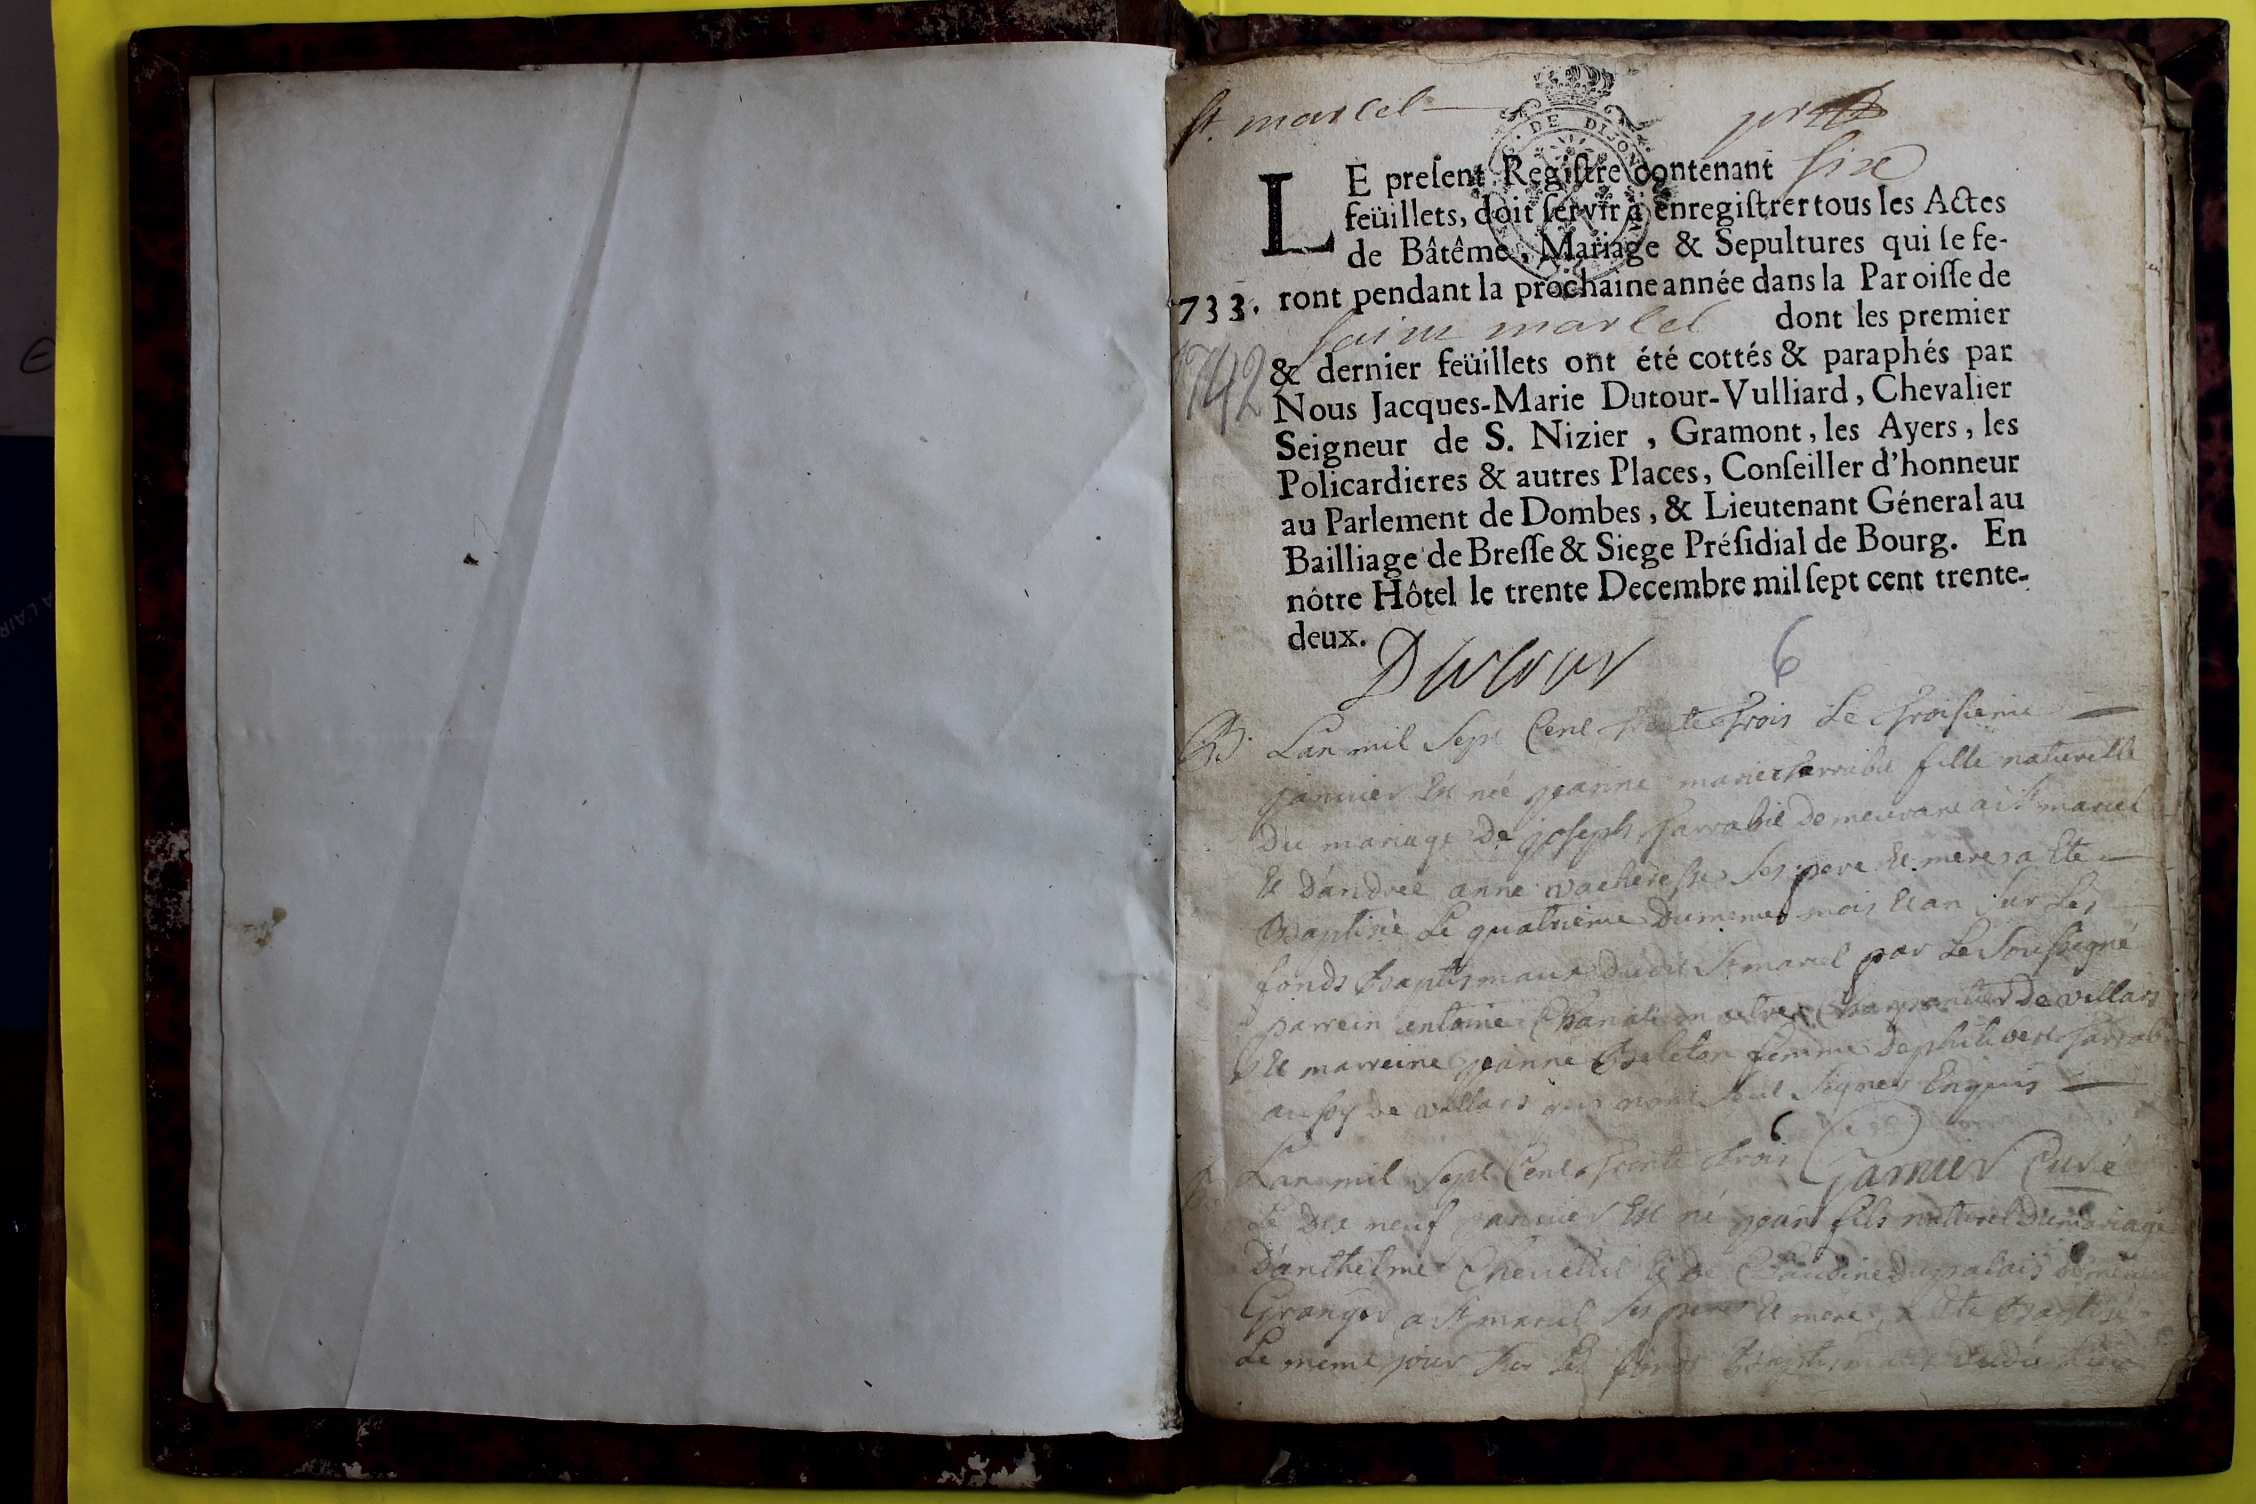 St. marcel
DE DIJON
LE preſent Regiſtre contenant six
feüillets, doit ſervir à enregiſtrer tous les Actes
de Bâtême, Mariage & Sepultures qui ſe fe-
733. ront pendant la prochaine année dans la Paroiſſe de
Saint marcel dont les premier
1742
& dernier feüillets ont été cottés & paraphés par
Nous Jacques-Marie Dutour-Vulliard, Chevalier
Seigneur de S. Nizier, Gramont, les Ayers, les
Policardieres & autres Places, Conſeiller d'honneur
au Parlement de Dombes, & Lieutenant Géneral au
Bailliage de Breſſe & Siege Préſidial de Bourg. En
nôtre Hôtel le trente Decembre mil ſept cent trente-
deux.
Dutour
6
B. L'an mil sept Cent trente trois Le troisieme
janvier Est né jeanne marie farrabie fille naturelle
Du mariage De joseph farrabie Demeurant a St marcel
Et D'andree anne vacheresse ses pere Et mere a Ete
Baptisé Le quatrieme Du meme mois Et an sur Les
fonds Baptismaux Dudit St marcel par Le soussigné
parrein antoine De villars
Et marreine jeanne femme De
aussy De villars qui n'ont sceu signer Enquis
Garnier Curé
B. L'an mil sept Cent trente trois
Le Dix neuf janvier Est né jean fils naturel Du mariage
D'anthelme Et De Claudine Dupalais
Granger a St marcel ses pere Et mere, a Ete Baptisé
Le meme jour sur Les fonds Baptismaux dudit lieu